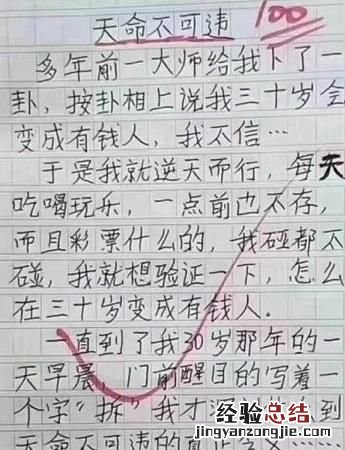 天命不可违
100
多年前一大师给我卜了一
卦，按卦相上说我三十岁会
变成有钱人，我不信…
于是我就逆天而行，每天
吃喝玩乐，一点前也不存，
而且彩票什么的，我碰都不
碰，我就想验证一下，怎么
在三十岁变成有钱人。
一直到了我30岁那年的一
天早晨，门前醒目的写着一
个字“拆”我才
到
天命不可违的真正含义……
经验总结
www.jiangyanzongjie.com